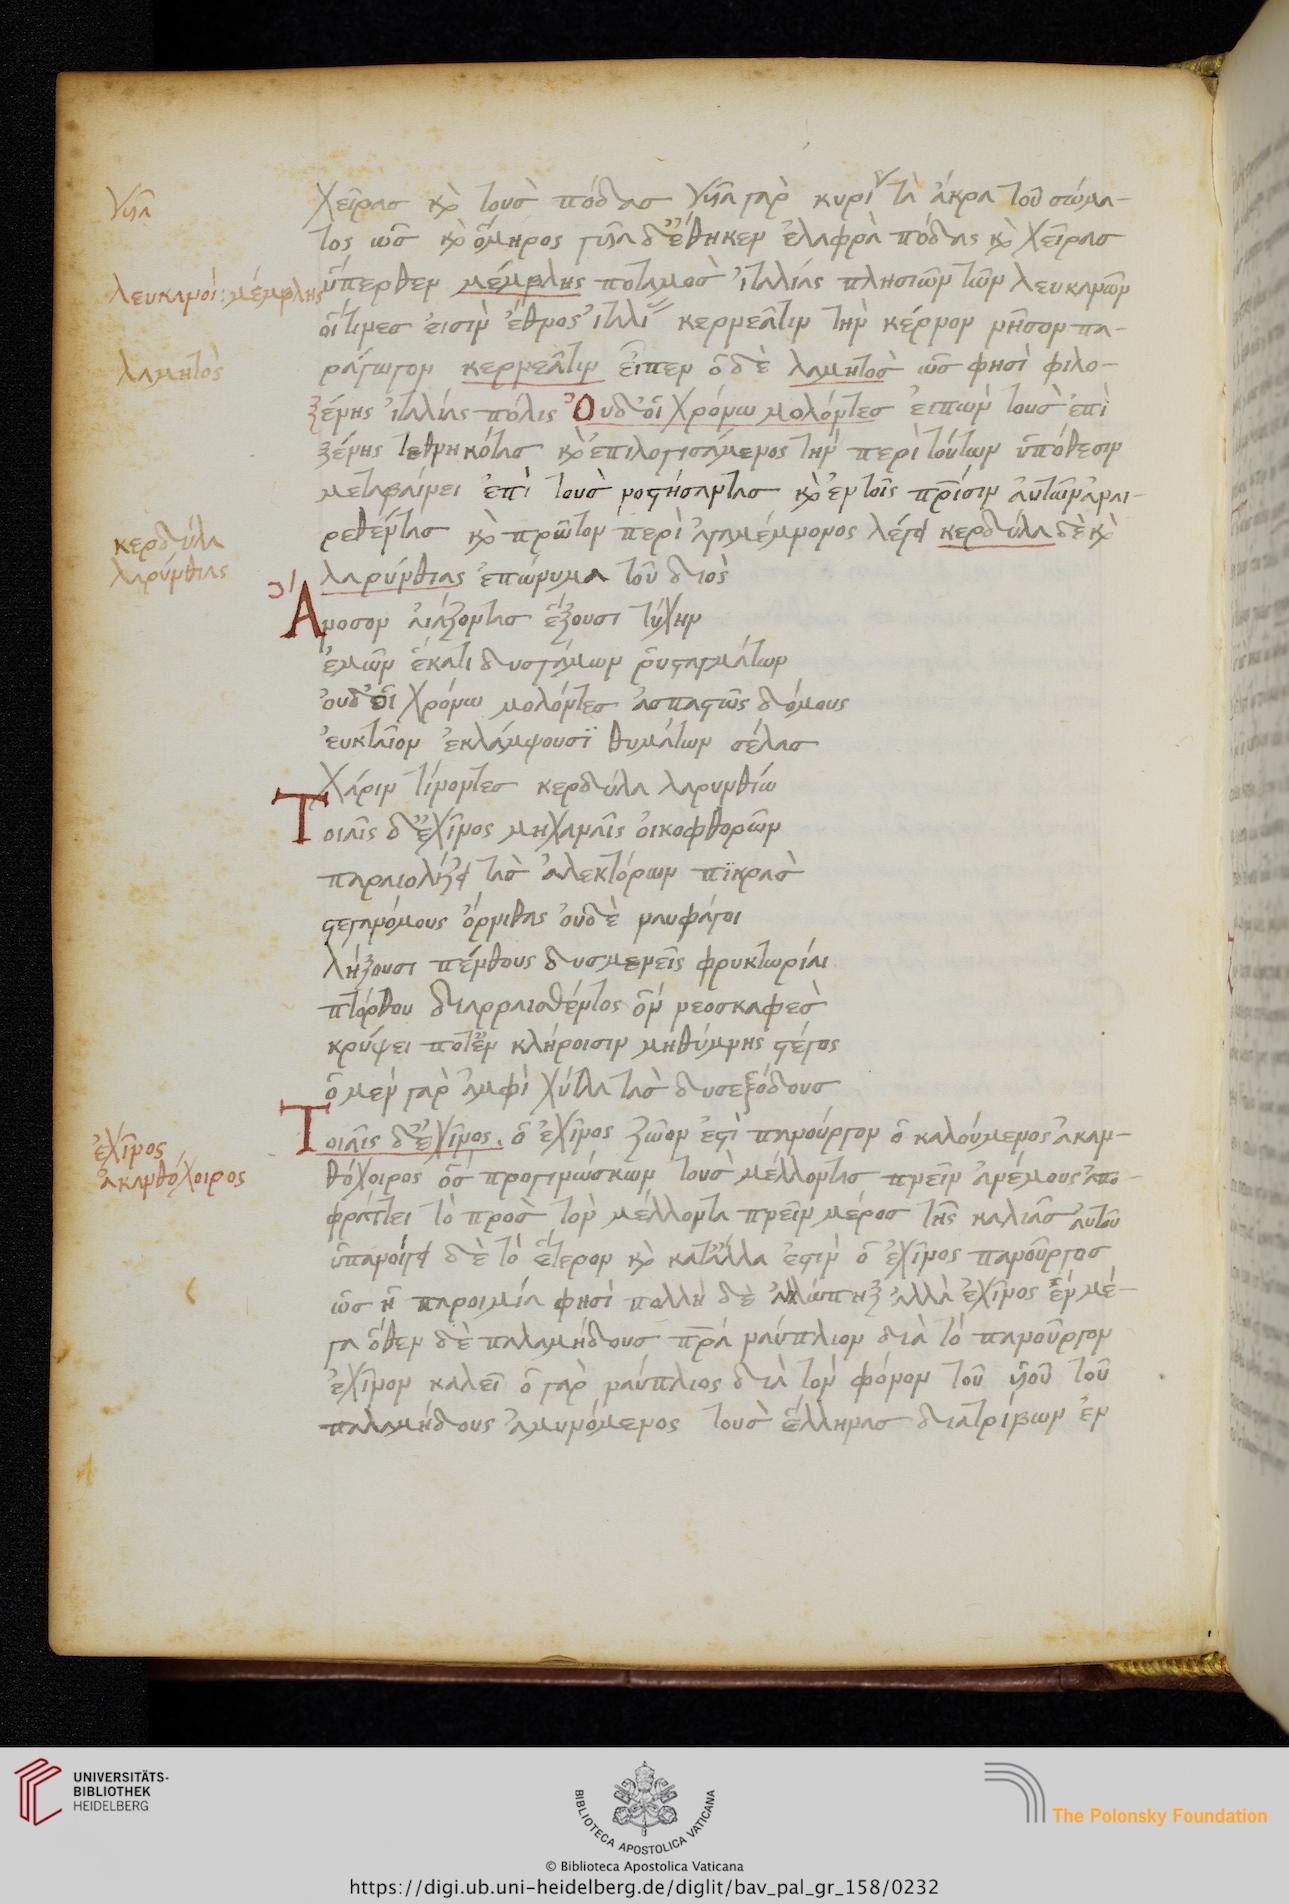 γυῖα
χεῖρας καὶ τοὺς πόδας γυῖα γὰρ κυρί τὰ ἄκρα τοῦ σώμα-
τος ὡς καὶ ὅμηρος γυῖα δ' ἔθηκεν ἐλαφρὰ πόδας καὶ χεῖρας
λευκανοί: μέμβλης
ὕπερθεν μέμβλης ποταμὸς ἰταλίας πλησιῶν τῶν λευκανῶν
οἵτινες εἰσὶν ἔθνος ἰταλι κερνεᾶτιν τὴν κέρνον νῆσον πα-
λαμητὸς
ράγωγον κερνεᾶτιν εἶπεν ὁ δὲ λαμητὸς ὡς φησὶ φιλο-
ξένης ἰταλίας πόλις Οὐδ' οἱ χρόνω μολόντες εἰπὼν τοὺς ἐπὶ
ξένης τεθνηκότας καὶ ἐπιλογισάμενος τὴν περὶ τούτων ὑπόθεσιν
μεταβαίνει ἐπὶ τοὺς νοστήσαντας καὶ ἐν τοῖς πρίσιν αὐτῶν ἀναι-
ρεθέντας καὶ πρῶτον περὶ ἀγαμέμνονος λέγει κερδύλα δὲ καὶ
κερδύλα
λαρύνθιας
λαρύνθιας ἐπώνυμα τοῦ διός
Ἄνοσον αἰάζοντας ἕξουσι τύχην
ἐμῶν ἕκατι δυσγάμων ῥυσταγμάτων
οὐδ' οἱ χρόνω μολόντες ἀσπαστῶς δόμους
εὐκταῖον ἐκλάμψουσϊ θυμάτων σέλας
χάριν τίνοντες κερδύλα λαρυνθίω
Τοιαῖς δ' ἐχῖνος μηχαναῖς οἰκοφθορῶν
παραιολίζει τὰς ἀλεκτόρων πϊκρὰς
στεγανόμους ὄρνιθας οὐδὲ ναυφάγοι
λήξουσι πένθους δυσμενεῖς φρυκτωρίαι
πτόρθου διαρραισθέντος ὃν νεοσκαφὲς
κρύψει ποτ' ἐν κλήροισιν μηθύμνης στέγος
ὁ μὲν γὰρ ἀμφὶ χύτλα τὰς δυσεξόδους
Τοιαῖς δ' ἐχῖνος. ὁ ἐχῖνος ζῶον ἐστὶ πανούργον ὁ καλούμενος ἀκαν-
ἐχῖνος
ἀκανθόχοιρος
θόχοιρος ὃς προγινώσκων τοὺς μέλλοντας πνεῖν ἀνέμους ἀπο-
φράττει τὸ πρὸς τὸν μέλλοντα πνεῖν μέρος τῆς καλιᾶς αὐτοῦ
ὑπανοίγει δὲ τὸ ἕτερον καὶ κατἄλλα ἐστὶν ὁ ἐχῖνος πανοῦργος
ὡς ἡ παροιμία φησὶ πολλὴ δὲ ἀλώπηξ ἀλλὰ ἐχῖνος ἓν μέ-
γα ὅθεν δὲ παλαμήδους πρα ναύπλιον διὰ τὸ πανοῦργον
ἐχῖνον καλεῖ ὁ γὰρ ναύπλιος διὰ τὸν φόνον τοῦ υἱοῦ τοῦ
παλαμήδους ἀμυνόμενος τοὺς ἕλληνας διατρίβων ἐν
UNIVERSITÄTS-
BIBLIOTHEK
HEIDELBERG
BIBLIOTECA APOSTOLICA VATICANA
The Polonsky Foundation
© Biblioteca Apostolica Vaticana
https://digi.ub.uni-heidelberg.de/diglit/bav_pal_gr_158/0232